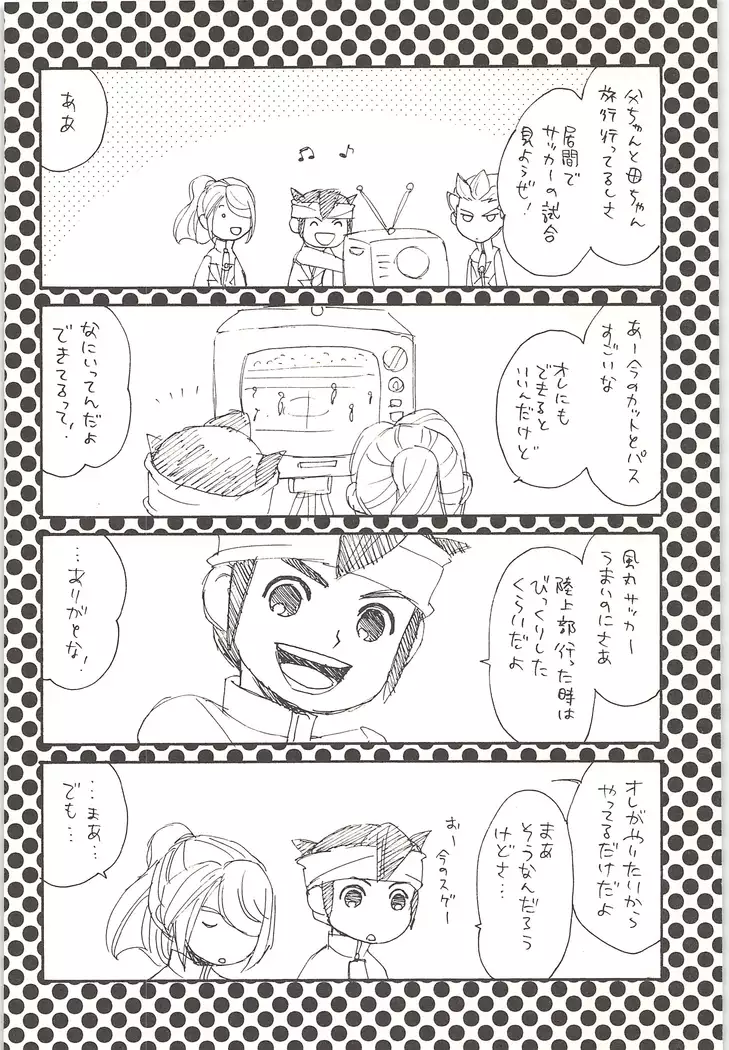 父ちゃんと母ちゃん
旅行行ってるしさ
居間で
サッカーの試合
見ようぜ!
ああ
あー今のカットとパス
すごいな
オレにも
できると
いいんだけど
なにいってんだよ
できてるって!
風丸サッカー
うまいのにさあ
陸上部行った時は
びっくりした
くらいだよ
…ありがとな!
オレがやりたいから
やってるだけだよ
まあ
そうなんだろう
けどさ…
おー
今のスゲー
…まあ…
でも…